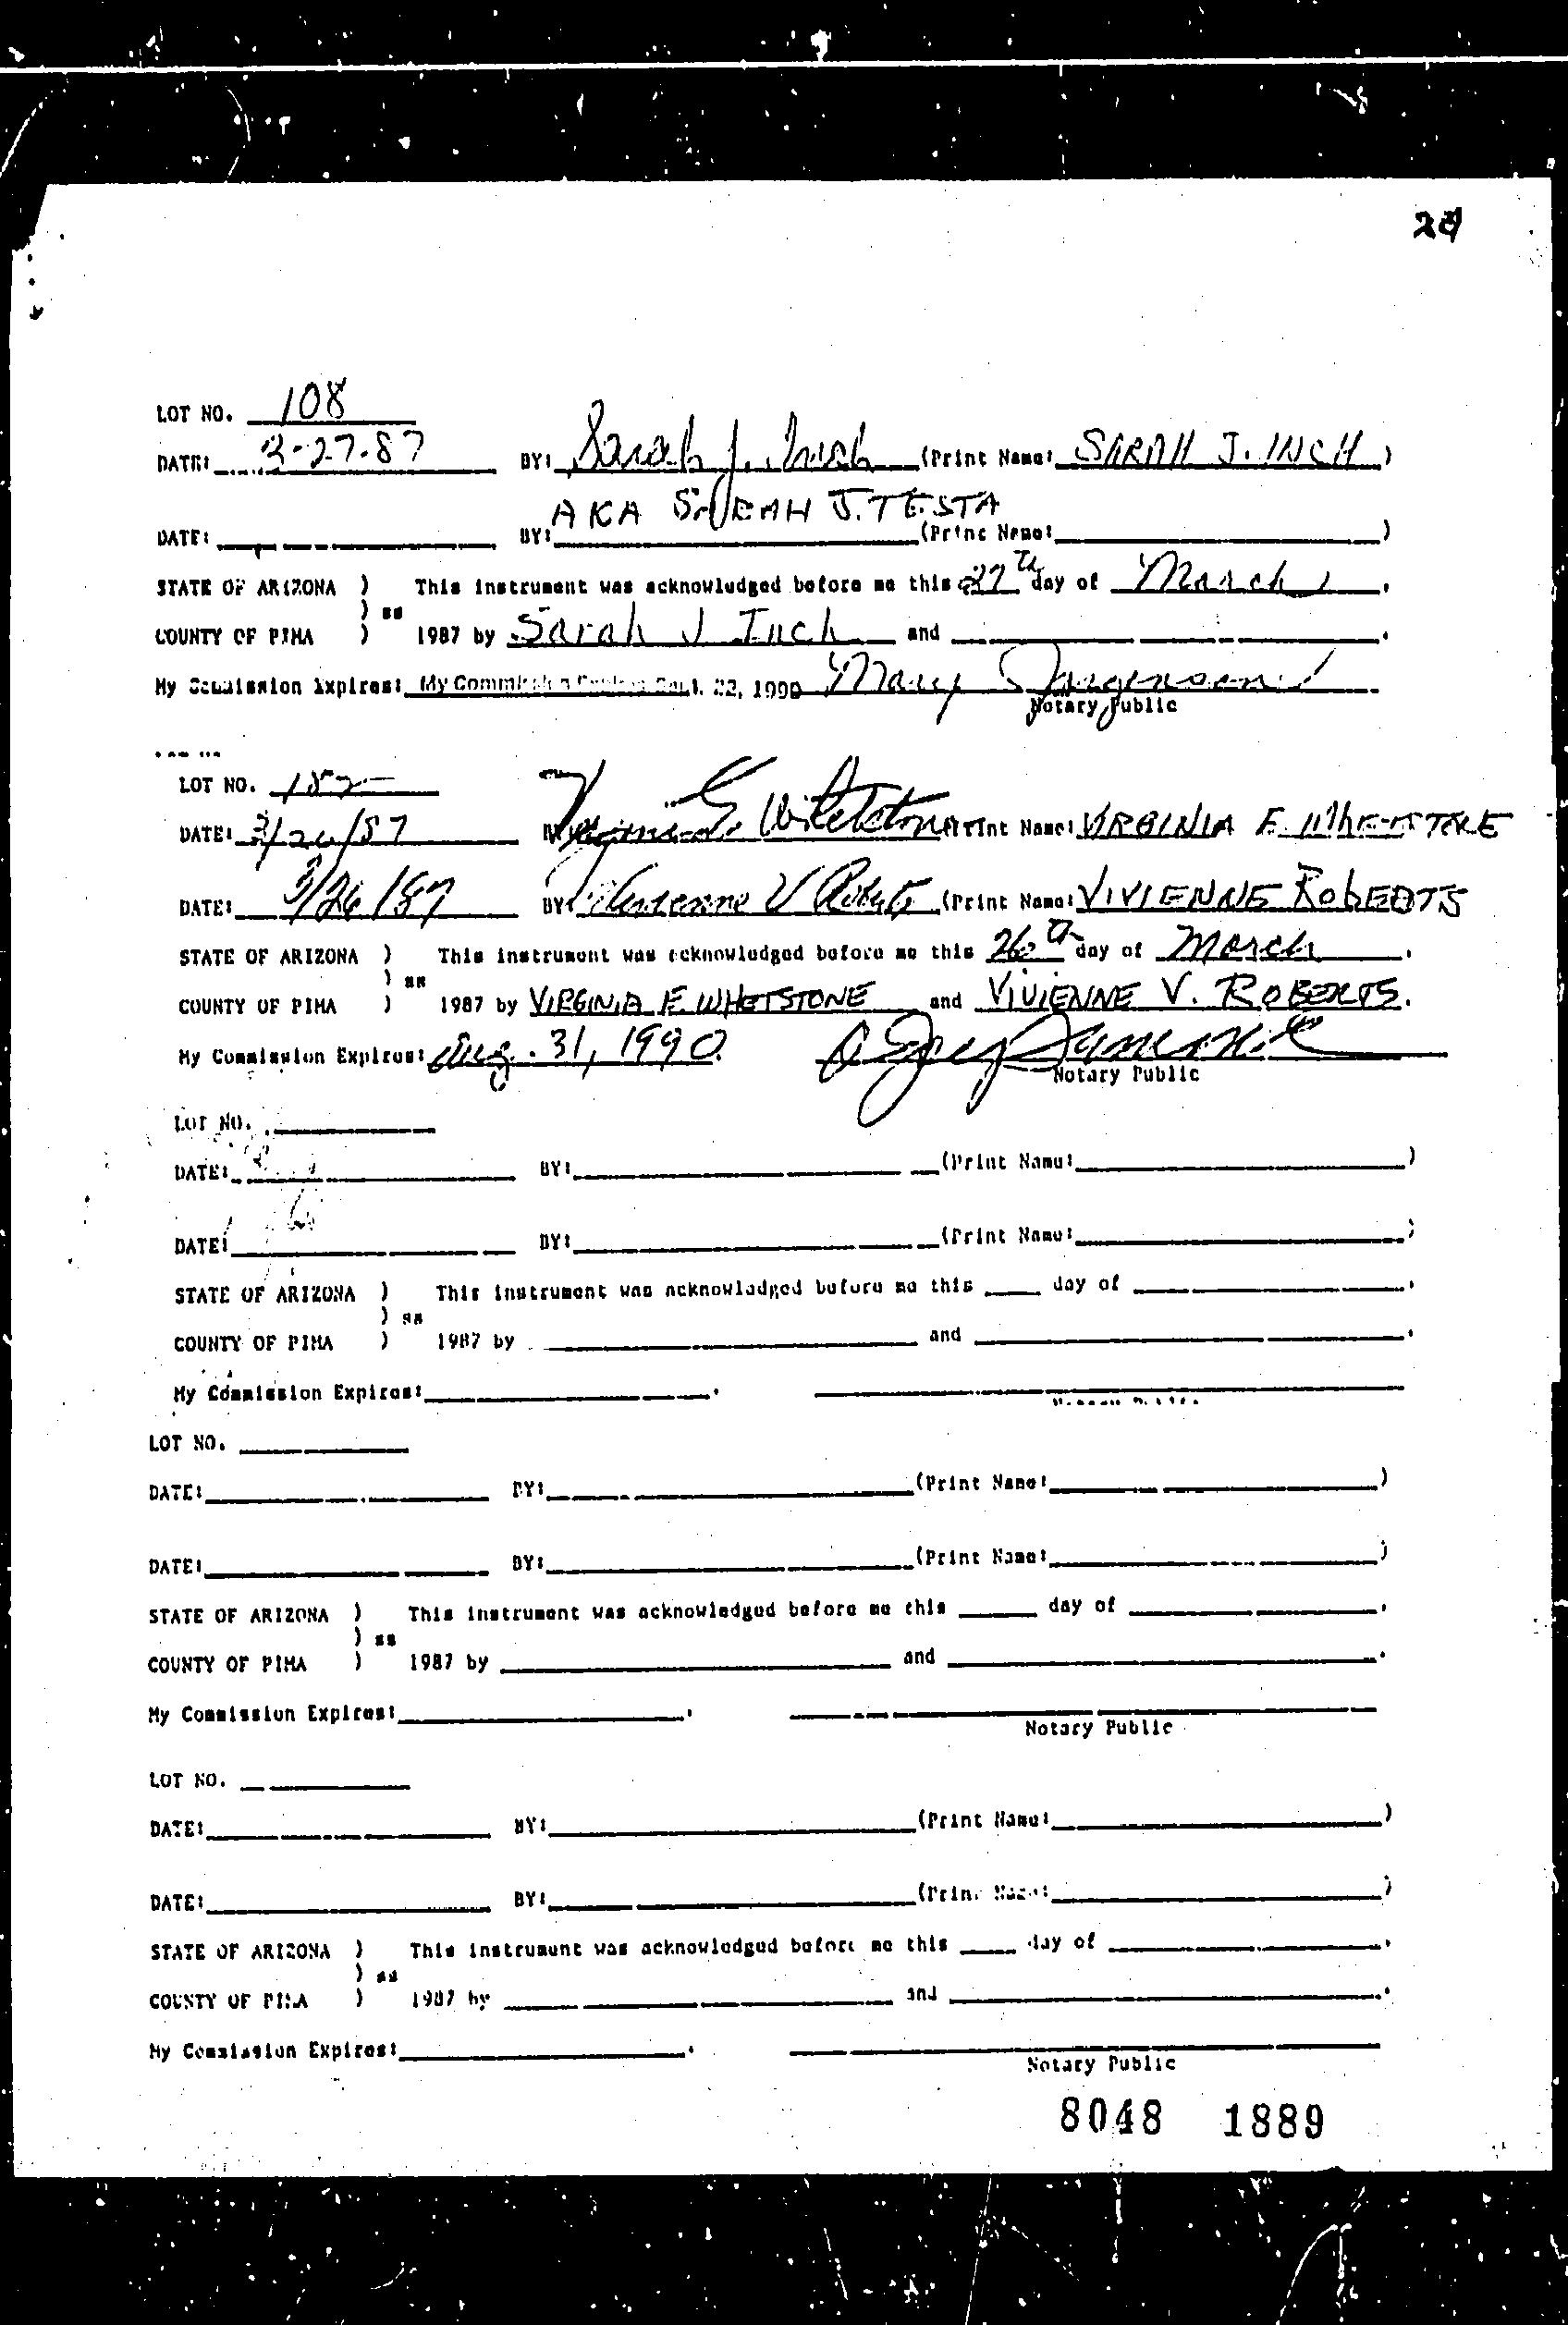 LOT NO. 108
DATE: 3-27-87 BY: Sarah J. Inch (Print Name: SARAH J. INCH)
AKA SARAH J. TESTA
DATE: BY: (Print Name: )
STATE OF ARIZONA ) This instrument was acknowledged before me this 27th day of March,
) ss
COUNTY OF PIMA ) 1987 by Sarah J Inch and .
My Commission Expires: My Commission Expires Sept. 22, 1990 Mary Jorgenson
Notary Public
LOT NO. 182
DATE: 3/26/87 Virginia E. Whetstone (Print Name: VIRGINIA E. WHETSTONE
DATE: 3/26/87 BY: Vivienne V Roberts (Print Name: VIVIENNE ROBERTS
STATE OF ARIZONA ) This instrument was acknowledged before me this 26th day of March.
) ss
COUNTY OF PIMA ) 1987 by VIRGINIA E. WHETSTONE and VIVIENNE V. ROBERTS.
My Commission Expires: Aug. 31, 1990.
Notary Public
LOT NO.
DATE: BY: (Print Name: )
DATE: BY: (Print Name: )
STATE OF ARIZONA ) This instrument was acknowledged before me this day of .
) ss
COUNTY OF PIMA ) 1987 by and .
My Commission Expires: .
LOT NO.
DATE: BY: (Print Name: )
DATE: BY: (Print Name: )
STATE OF ARIZONA ) This instrument was acknowledged before me this day of .
) ss
COUNTY OF PIMA ) 1987 by and .
My Commission Expires: .
Notary Public
LOT NO.
DATE: BY: (Print Name: )
DATE: BY: (Print Name: )
STATE OF ARIZONA ) This instrument was acknowledged before me this day of .
) ss
COUNTY OF PIMA ) 1987 by and .
My Commission Expires: .
Notary Public
8048 1889